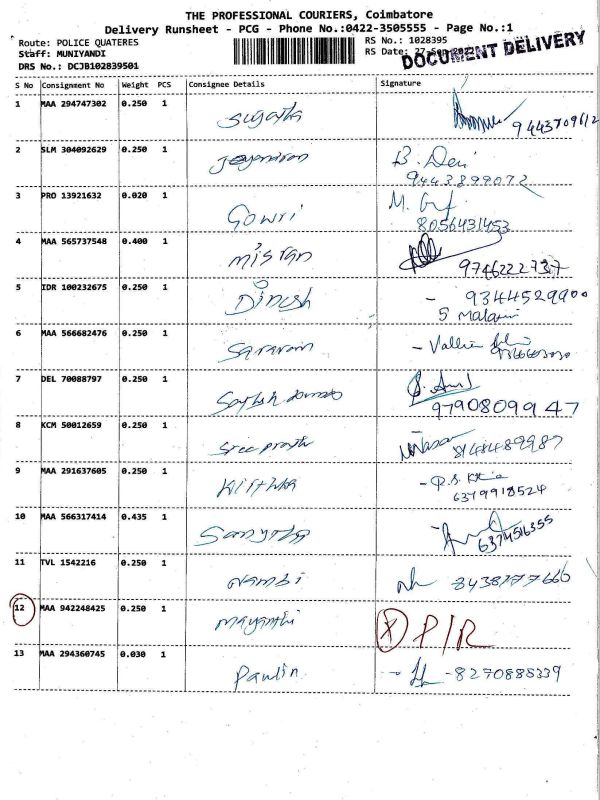 THE PROFESSIONAL COURIERS, Coimbatore
Delivery Runsheet - PCG - Phone No.:0422-3505555 - Page No.:1
Route: POLICE QUATERES RS No.: 1028395
Staff: MUNIYANDI RS Date: 27-Sep-2022
DOCUMENT DELIVERY
DRS No.: DCJB102839501
S No Consignment No Weight PCS Consignee Details Signature
1 MAA 294747302 0.250 1 Sujatha
9443709612
2 SLM 304092629 0.250 1 B. Devi
9443899072
3 PRO 13921632 0.020 1 Gowri M.
8056431453
4 MAA 565737548 0.400 1
9746222737
5 IDR 100232675 0.250 1 Dinesh - 9344529900
5
6 MAA 566682476 0.250 1 Saravan -
7 DEL 70088797 0.250 1
9790809947
8 KCM 50012659 0.250 1 8148489987
9 MAA 291637605 0.250 1 Kirthika
6379918524
10 MAA 566317414 0.435 1
6374516355
11 TVL 1542216 0.250 1 Nambi 8438777666
12 MAA 942248425 0.250 1 Mayanthi X P/R
13 MAA 294360745 0.030 1 Paulin - 8270885339